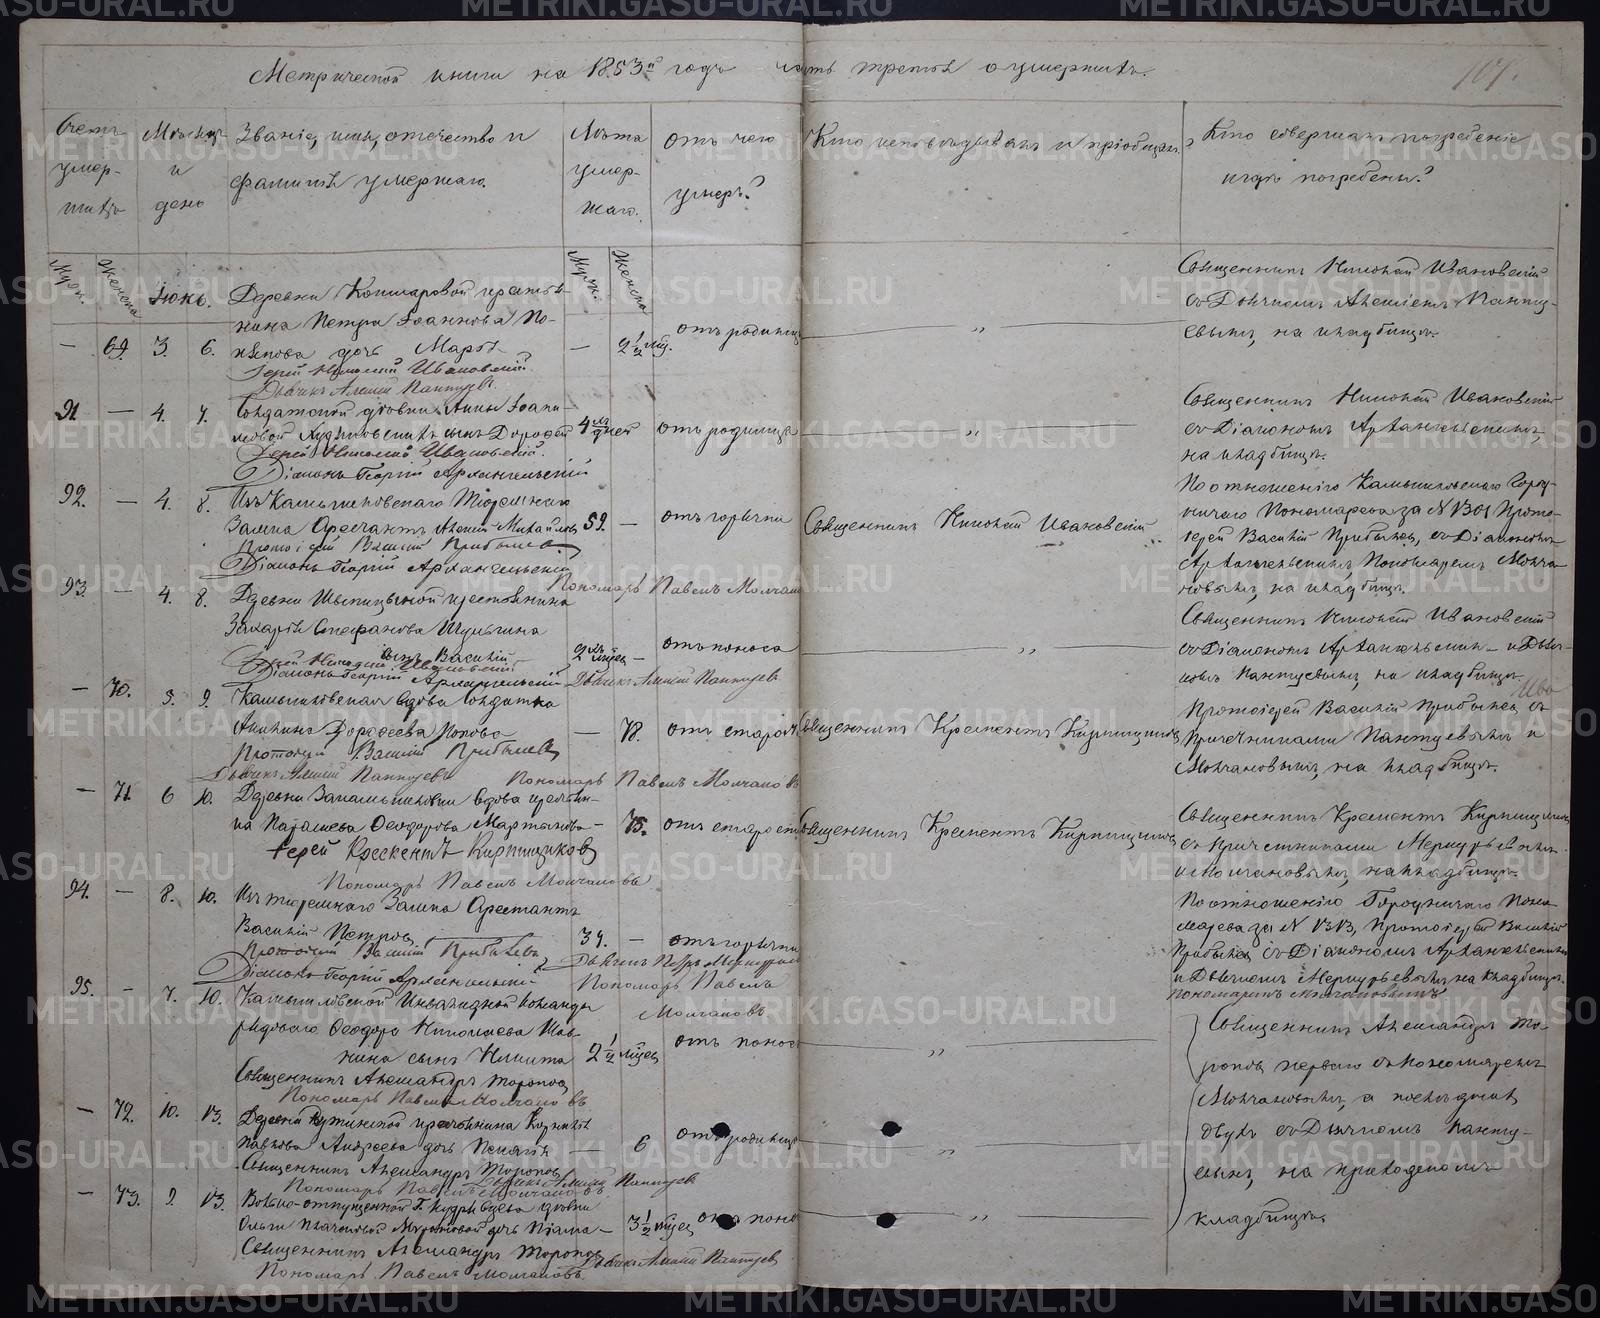 Метрической книги на 1853й годъ часть третья о умершихъ.
107.
Счетъ умер-шихъ
Мѣсяцъ и день
Званіе, имя, отечество и фамилія умершаго.
Лѣта умер-шаго.
Отъ чего умеръ?
Кто исповѣдывалъ и пріобщалъ?
Кто совершалъ погребеніе и гдѣ погребены?
Муж. Женска
Муж. Женска
Іюнь.
Деревни крестья-
нина Петра Іоаннова По-
— 69. 3. 6. дочь Марѳа — 2 1/2 мѣс. отъ родимца „
Іерей Николай Ивановскій
Дьячекъ Алексій Пантуевъ
Священникъ Николай Ивановскій
съ Дьячкомъ Алексіемъ Панту-
евымъ, на кладбищѣ.
91. — 4. 7. Солдатской дѣвки Анны
сынъ Дороѳей 4 дней отъ родимца „
Іерей Николай Ивановскій.
Діаконъ Георгій Архангельскій
Священникъ Николай Ивановскій
съ Діакономъ Архангельскимъ,
на кладбищѣ.
92. — 4. 8. Изъ Камышловскаго Тюремнаго
Замка Арестантъ Михайловъ 59. — отъ горячки Священникъ Николай Ивановскій
Протоіерей Василій Прибылевъ
Діаконъ Георгій Архангельскій
Пономарь Павелъ Молчановъ
По отношенію Камышловскаго Горо-
ничаго Пономарева за № 1301 Прото-
іерей Василій Прибылевъ, съ Діакономъ
Архангельскимъ, Пономаремъ Молча-
новымъ, на кладбищѣ.
93. — 4. 8. Деревни крестьянина
Захарія Стефанова Шульгина
сынъ Василій 2 мѣсяц. — отъ поноса „
Іерей Николай Ивановскій
Діаконъ Георгій Архангельскій Дьячекъ Алексій Пантуевъ
Священникъ Николай Ивановскій
съ Діакономъ Архангельским и Дьяч-
комъ Пантуевымъ, на кладбищѣ.
— 70. 3. 9. Камышловская вдова Солдатка
Дороѳеева Попова — 78. отъ старости Священникъ Крискентъ Кирпищиковъ
Протоіерей Василій Прибылевъ
Дьячекъ Алексій Пантуевъ Пономарь Павелъ Молчановъ
Протоіерей Василій Прибылевъ съ
Причетниками Пантуевымъ и
Молчановымъ, на кладбищѣ.
— 71. 6 10. Деревни вдова крестьян-
ка Ѳеодорова Мартынова — 75. отъ старости Священникъ Крискентъ Кирпищиковъ
Іерей Крискентъ Кирпищиковъ
Пономарь Павелъ Молчановъ
Священникъ Крискентъ Кирпищиковъ
съ причетниками Меркурьевымъ
и Молчановымъ, на кладбищѣ.
94. — 8. 10. Изъ тюремнаго Замка Арестантъ
Василій Петровъ 34. — отъ горячки
Протоіерей Василій Прибылевъ
Діаконъ Георгій Архангельскій Пономарь Павелъ
Молчановъ
По отношенію Городничаго Поно-
марева за № 1313, Протоіерей Василій
Прибылевъ съ Діакономъ Архангельскимъ
и Дьячкомъ Меркурьевымъ, на кладбищѣ.
Пономаремъ Молчановымъ
95. — 7. 10. Камышловской Инвалидной команды
рядоваго Ѳеодора Николаева
сынъ Никита 2 1/2 мѣсяц отъ поноса „
Священникъ Александръ Тороповъ
Пономарь Павелъ Молчановъ
Священникъ Александръ То-
роповъ перваго съ Пономаремъ
Молчановымъ, а послѣднихъ
двухъ съ Дьячкомъ Панту-
евымъ, на приходскомъ
кладбищѣ.
— 72. 10. 13. Деревни крестьянина
Андреева дочь Пелагія — 6 отъ родимца „
Священникъ Александръ Тороповъ
Дьячекъ Алексій Пантуевъ
Пономарь Павелъ Молчановъ
— 73. 9. 13. Вольно-отпущенной Г. дѣвки
Ольги дочь 3 1/2 мѣсяц отъ поноса „
Священникъ Александръ Тороповъ
Дьячекъ Алексій Пантуевъ
Пономарь Павелъ Молчановъ.
METRIKI.GASO-URAL.RU